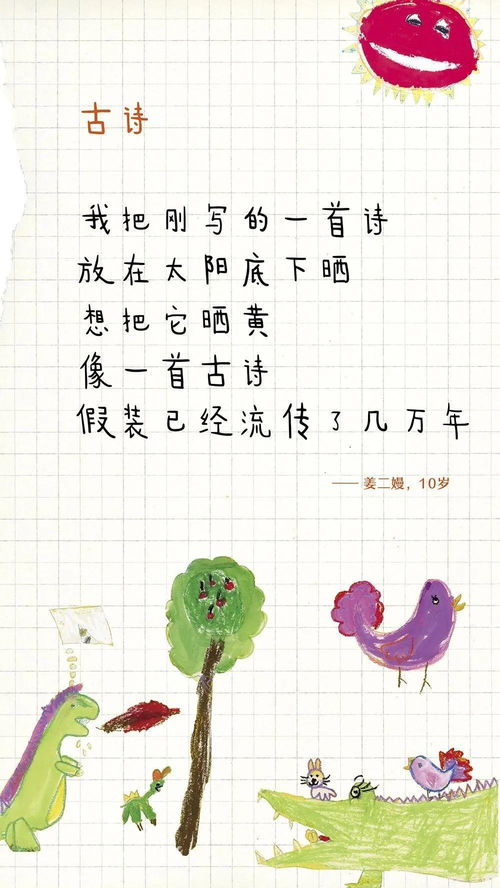 古诗
我把刚写的一首诗
放在太阳底下晒
想把它晒黄
像一首古诗
假装已经流传了几万年
—— 姜二嫚，10岁